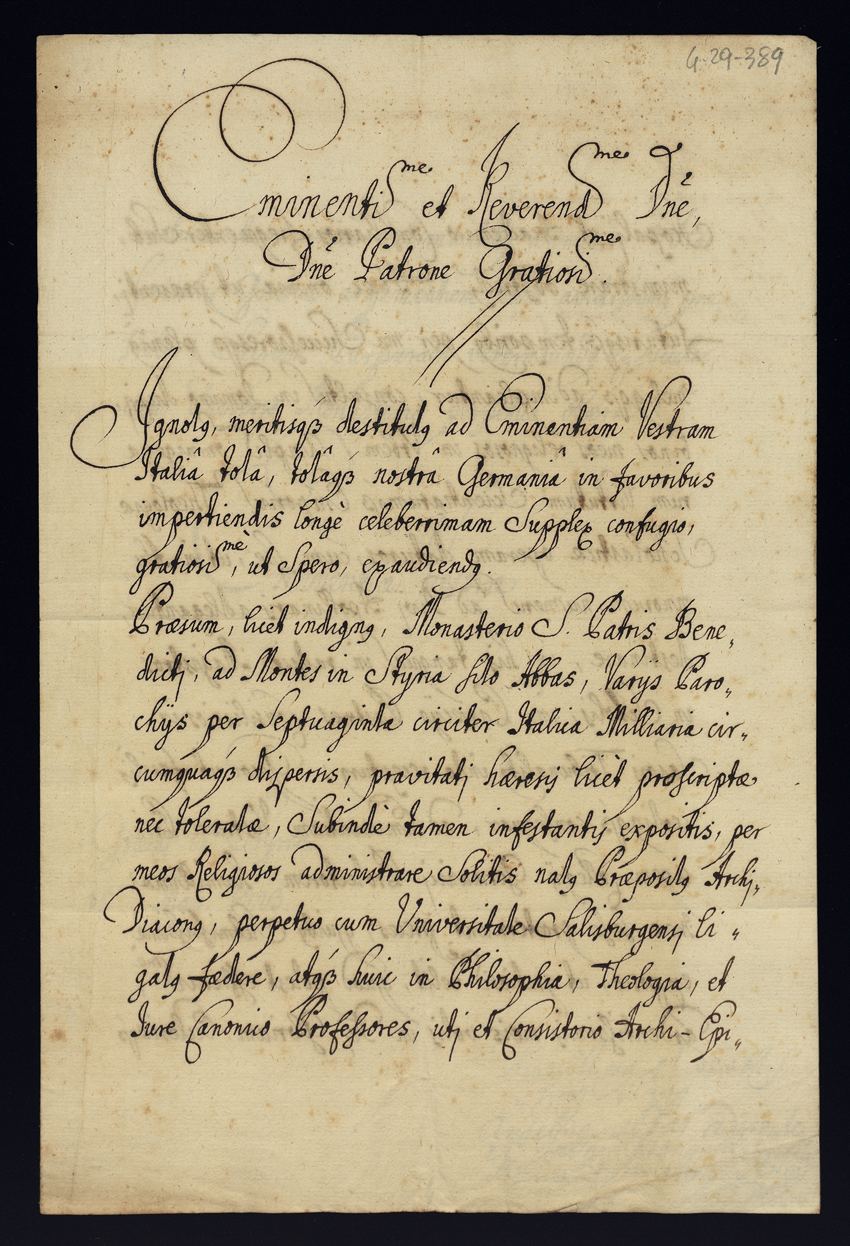 4-29-389
Eminentiſme et Reverendme Dnē,
Dnē Patrone Gratiosime.
Ignotꝰ, meritisqꝫ destitutꝰ ad Eminentiam Vestram
Italiâ totâ, totâqꝫ nostrâ Germaniâ in favoribus
impertiendis longè celeberrimam Supplex confugio,
gratiosimè, ut Spero, exaudiendꝰ.
Præsum, licèt indignꝰ, Monasterio S. Patris Bene„
dictj, ad Montes in Styria sito Abbas, Varijs Paro„
chijs per Septuaginta circiter Italica Milliaria cir„
cumquaqꝫ dispersis, pravitatj hæresis licèt proscriptæ
nec toleratæ, Subindè tamen infestantis expositis, per
meos Religiosos administrare Solitis natꝰ Præpositꝰ Archi„
Diaconꝰ, perpetuo cum Universitate Salisburgensj li„
gatꝰ fædere, atqꝫ huic in Philosophia, Theologia, et
Iure Canonico Professores, utj et Consistorio Archi-Epi„